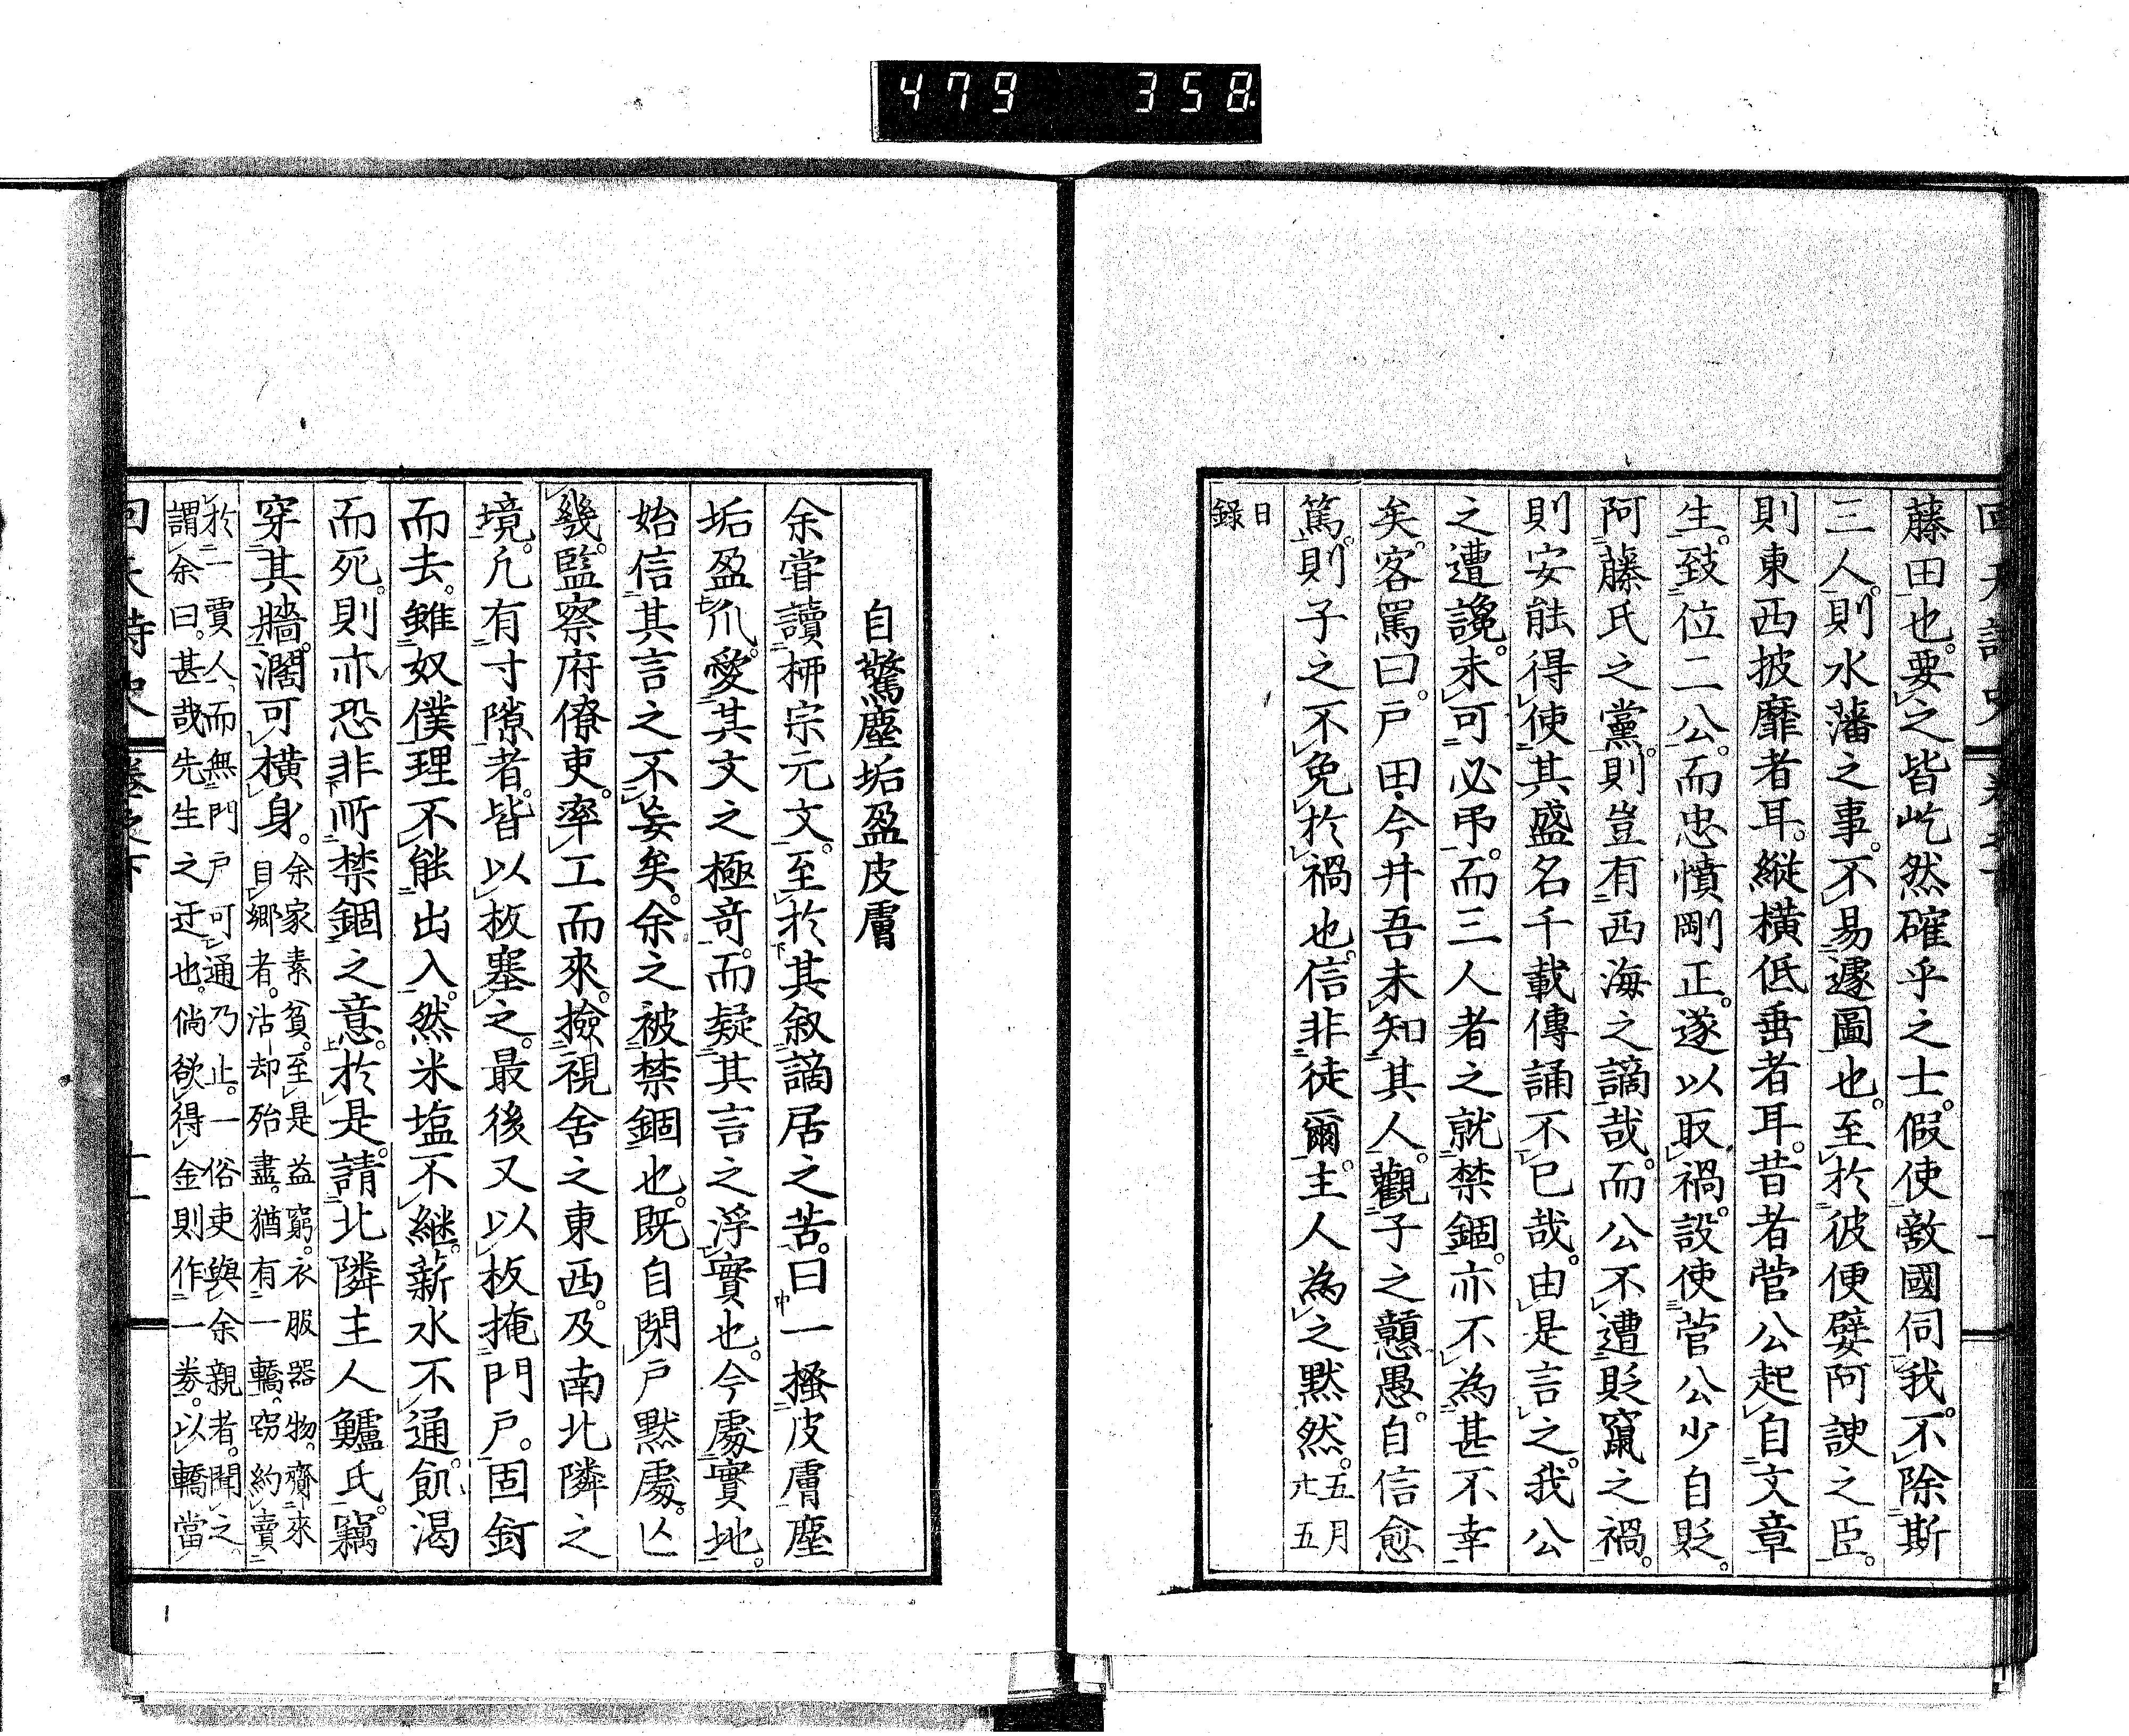 479 358
藤田也。要之皆屹然確乎之士。假使敵國伺我。不除斯
三人。則水藩之事。不易遽圖也。至於彼便嬖阿諛之臣。
則東西披靡者耳。縱橫低垂者耳。昔者菅公起自文章
生。致位二公。而忠憤剛正。遂以取禍。設使菅公少自貶。
阿藤氏之黨。則豈有西海之謫哉。而公不遭貶竄之禍。
則安能得使其盛名千載傳誦不已哉。由是言之。我公
之遭讒。未可必弔。而三人者之就禁錮。亦不為甚不幸
矣。客罵曰。戸田今井吾未知其人。觀子之戇愚。自信愈
篤。則子之不免於禍也。信非徒爾。主人為之黙然。五月廿五
日録
自驚塵垢盈皮膚
余甞讀柳宗元文。至於其叙謫居之苦。曰一搔皮膚塵
垢盈爪。愛其文之極奇。而疑其言之浮實也。今處實地。
始信其言之不妄矣。余之被禁錮也。既自閉戸黙處。亾
幾。監察府僚吏。率工而來。撿視舍之東西。及南北隣之
境。凡有寸隙者。皆以板塞之。最後又以板掩門戸。固釘
而去。雖奴僕理不能出入。然米塩不継。薪水不通。飢渴
而死。則亦恐非所禁錮之意。於是。請北隣主人鱸氏。竊
穿其牆。濶可横身。余家素貧。至是益窮。衣服器物。齎來
自郷者。沽却殆盡。猶有一轎。窃約賣
於二賈人、而無門戸可通乃止。一俗吏與余親者。聞之、
謂余曰。甚哉先生之迂也。倘欲得金則作一券。以轎當
卷之下 十一